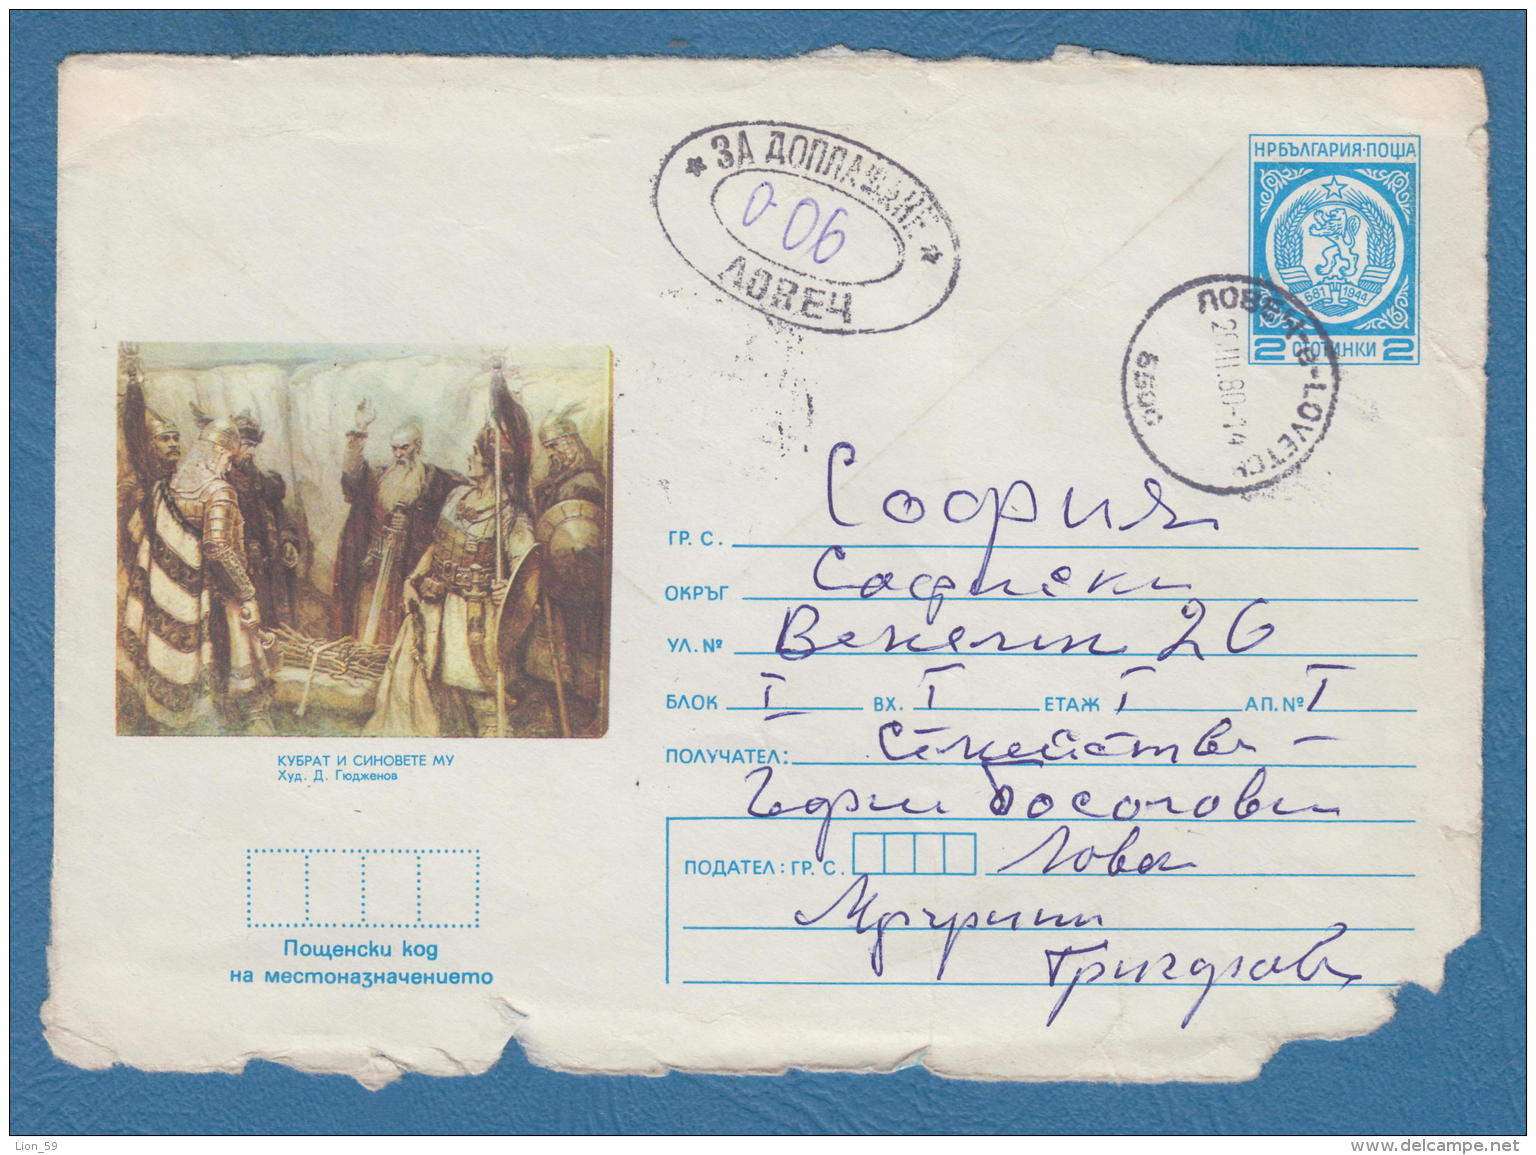 НРБЪЛГАРИЯ·ПОЩА
681 1944
2 СТОТИНКИ 2
* ЗА ДОПЛАЩАНЕ *
0-06
ЛОВЕЧ
ЛОВЕЧ-2-LOVETCH
80-14
5500
КУБРАТ И СИНОВЕТЕ МУ
Худ. Д. Гюдженов
ГР. С. София
ОКРЪГ Софийски
УЛ. № Венелин 26
БЛОК I ВХ. I ЕТАЖ I АП. № I
ПОЛУЧАТЕЛ: Семейство –
ПОДАТЕЛ: ГР. С.
Пощенски код
на местоназначението
Lion_59
www.delcampe.net